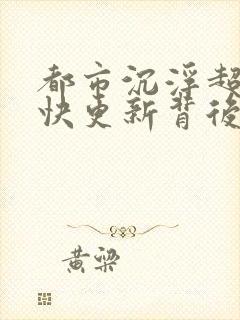 都市沉浮超
快更新背後
黄梁